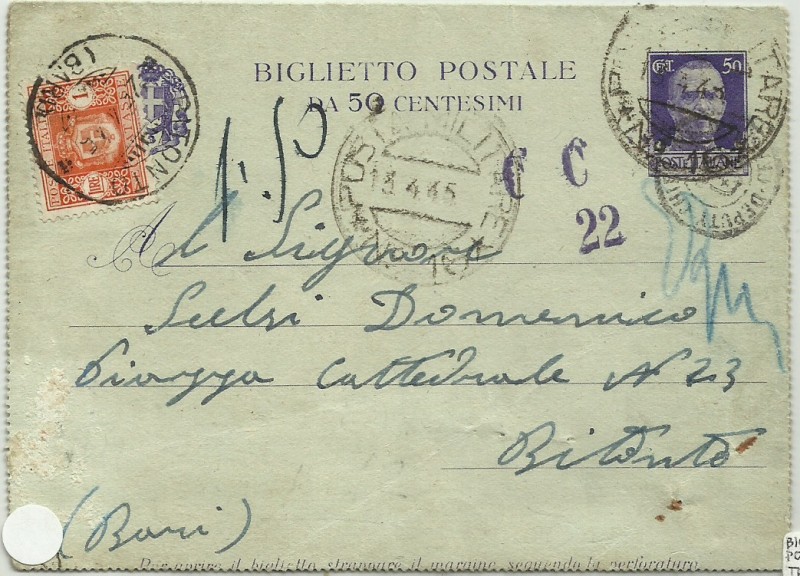 BIGLIETTO POSTALE
DA 50 CENTESIMI
CENT. 50
POSTE ITALIANE
1
1.50
POSTA MILITARE
13.4.45
C C
22
Al Signore
Sulsi Domenico
Piazza Cattedrale N 23
Bitonto
(Bari)
Per aprire il biglietto strappare il margine seguendo la perforatura.